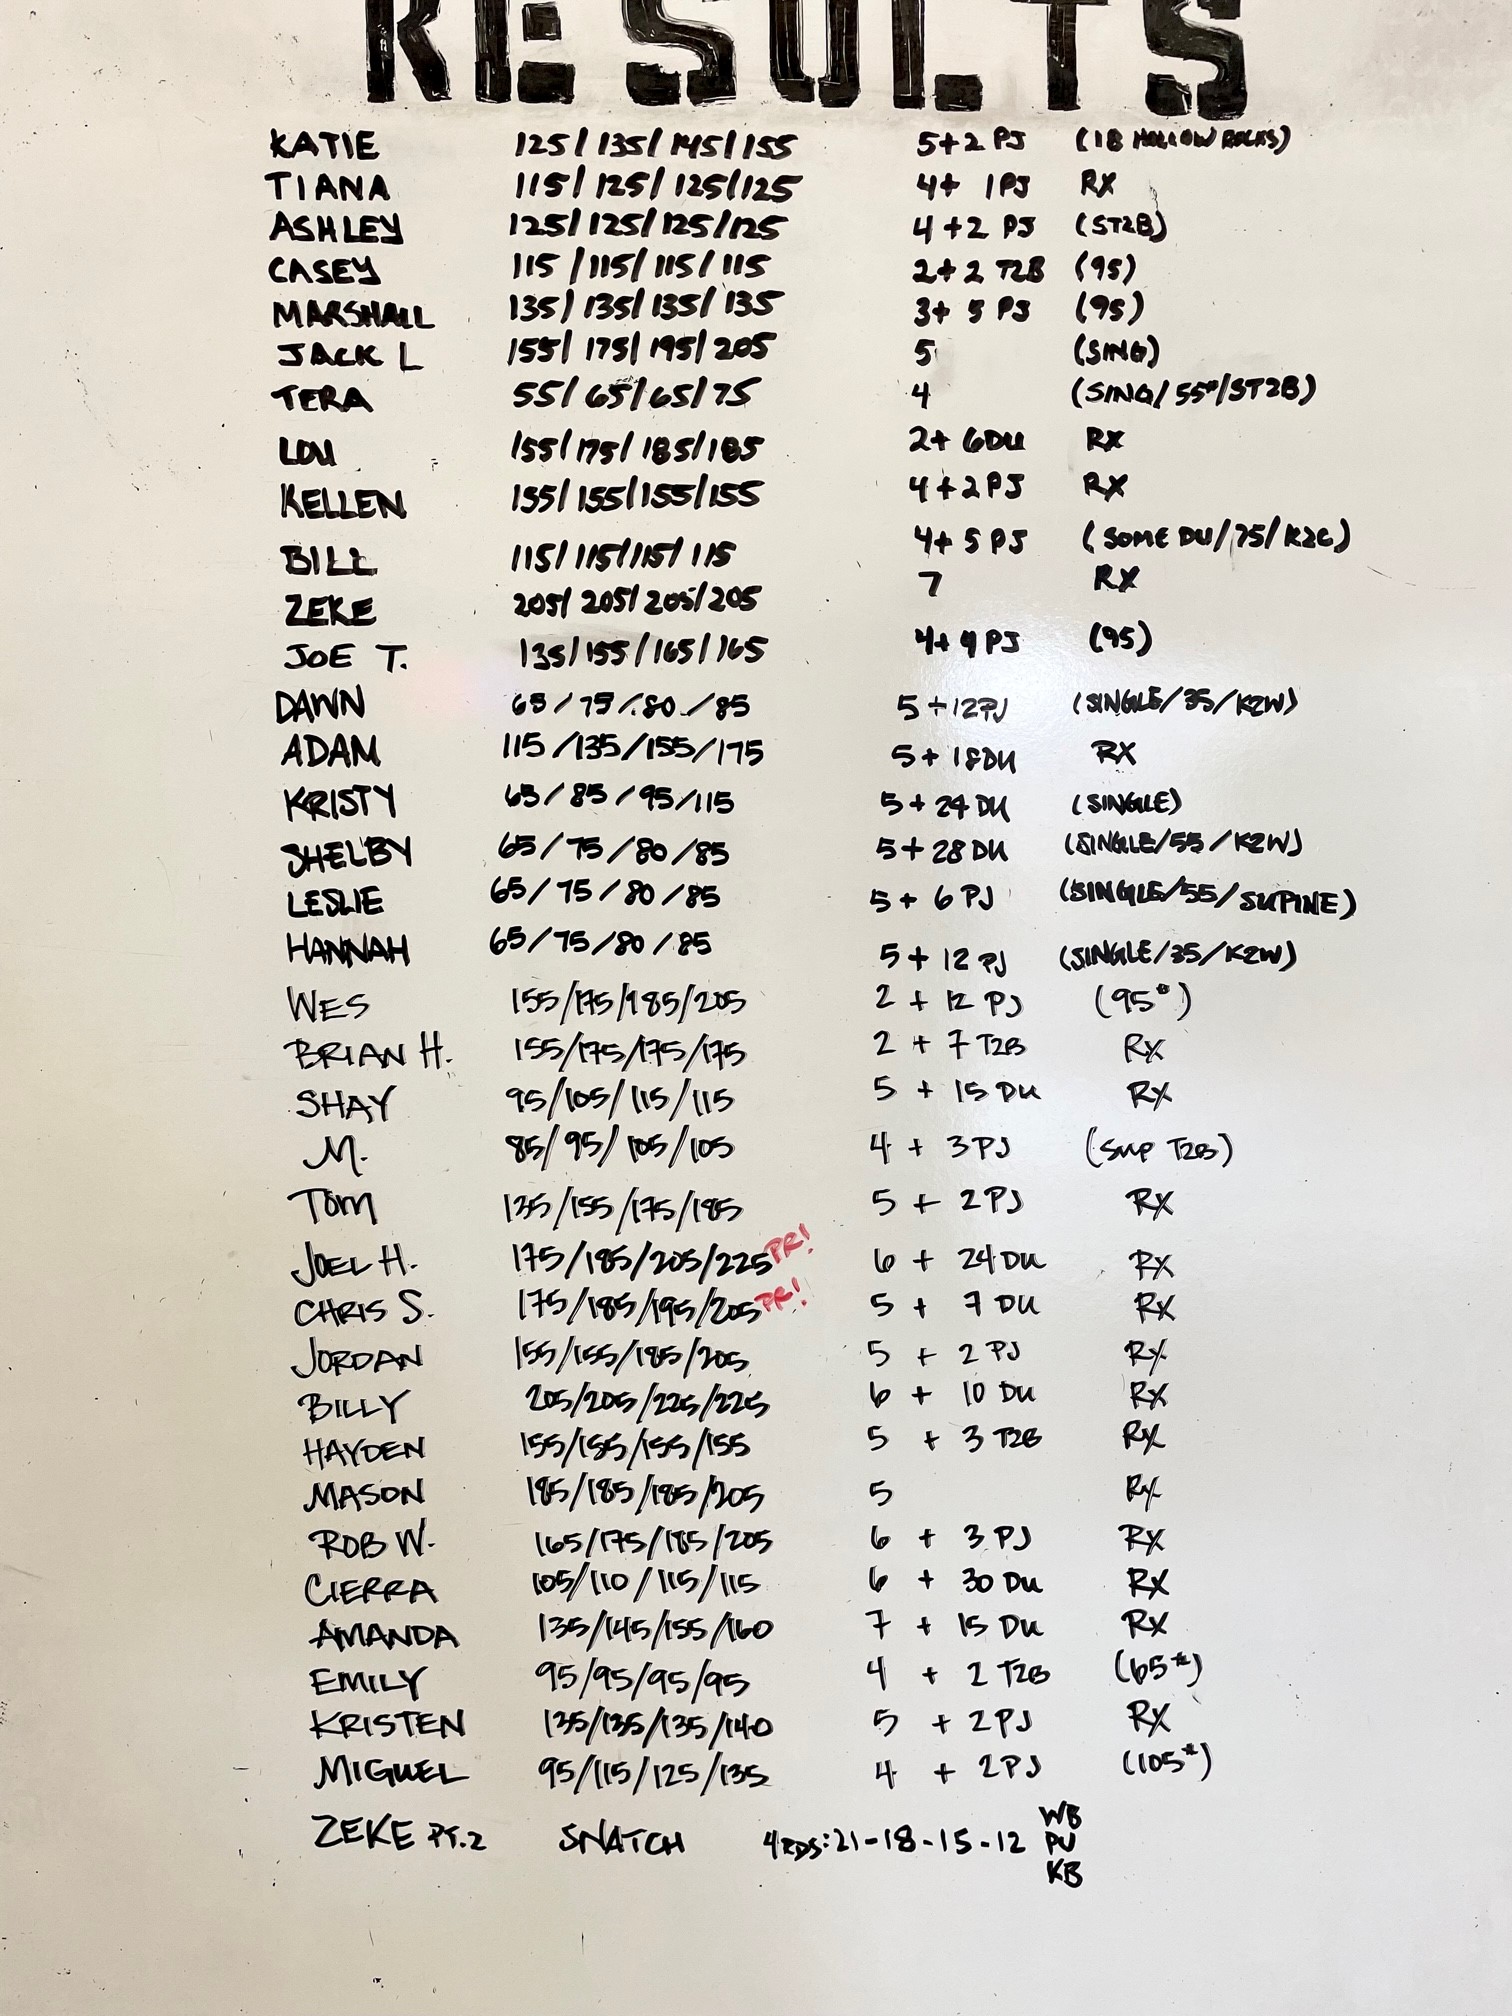 RESULTS
KATIE 125/135/145/155 5+2 PJ (18 HOLLOW ROCKS)
TIANA 115/125/125/125 4+ 1PJ RX
ASHLEY 125/125/125/125 4+2 PJ (ST2B)
CASEY 115/115/115/115 2+2 T2B (95)
MARSHALL 135/135/135/135 3+ 5 PJ (95)
JACK L 155/175/195/205 5 (SING)
TERA 55/65/65/75 4 (SING/55#/ST2B)
LOU 155/175/185/185 2+ 6DU RX
KELLEN 155/155/155/155 4+2PJ RX
BILL 115/115/115/115 4+5 PJ (SOME DU/75/K2C)
ZEKE 205/205/205/205 7 RX
JOE T. 135/155/165/165 4+9 PJ (95)
DAWN 65/75/80/85 5+12PJ (SINGLE/35/K2W)
ADAM 115/135/155/175 5+18DU RX
KRISTY 65/85/95/115 5+24 DU (SINGLE)
SHELBY 65/75/80/85 5+28 DU (SINGLE/55/K2W)
LESLIE 65/75/80/85 5+6 PJ (SINGLE/55/SUPINE)
HANNAH 65/75/80/85 5+12 PJ (SINGLE/35/K2W)
WES 155/175/185/205 2 + 12 PJ (95#)
BRIAN H. 155/175/175/175 2 + 7 T2B RX
SHAY 95/105/115/115 5 + 15 DU RX
M. 85/95/105/105 4 + 3PJ (SUP T2B)
TOM 135/155/175/185 5 + 2PJ RX
JOEL H. 175/185/205/225 PR! 6 + 24DU RX
CHRIS S. 175/185/195/205 PR! 5 + 7 DU RX
JORDAN 155/155/185/205 5 + 2 PJ RX
BILLY 205/205/225/225 6 + 10 DU RX
HAYDEN 155/155/155/155 5 + 3 T2B RX
MASON 185/185/185/205 5 RX
ROB W. 165/175/185/205 6 + 3 PJ RX
CIERRA 105/110/115/115 6 + 30 DU RX
AMANDA 135/145/155/160 7 + 15 DU RX
EMILY 95/95/95/95 4 + 2 T2B (65#)
KRISTEN 135/135/135/140 5 + 2PJ RX
MIGUEL 95/115/125/135 4 + 2PJ (105#)
ZEKE PT.2 SNATCH 4RDS: 21-18-15-12 WB
PU
KB